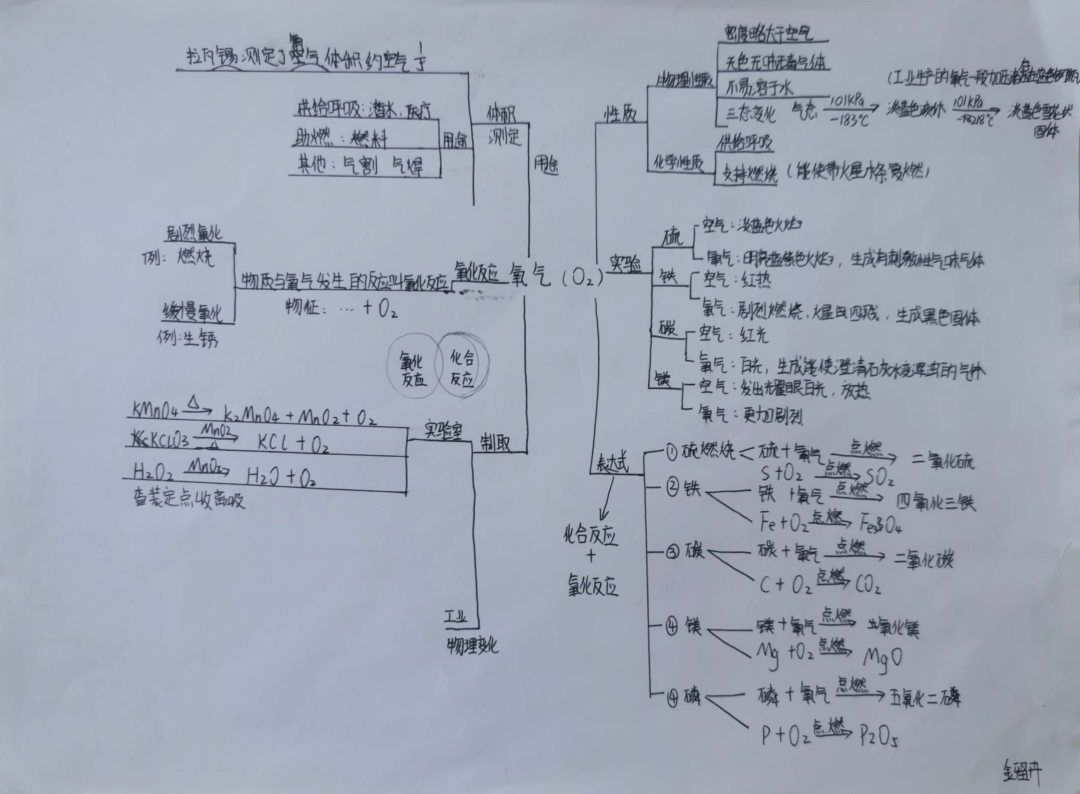 拉瓦锡测定了氧气体积约空气 1/5
体积
测定
供给呼吸：潜水、医疗
助燃：燃料
其他：气割 气焊
用途
用途
剧烈氧化
例：燃烧
缓慢氧化
例：生锈
物质与氧气发生的反应叫氧化反应
物征：… + O2
氧化反应
氧气（O2）
氧化
反应
化合
反应
KMnO4 △→ K2MnO4 + MnO2 + O2
KClO3 MnO2 △→ KCl + O2
H2O2 MnO2→ H2O + O2
查装定点收离吸
实验室
制取
工业
物理变化
性质
物理性质
密度略大于空气
无色无味气体
不易溶于水
三态变化 气态 101KPa -183℃→ 淡蓝色液体 101KPa -218℃→ 淡蓝色雪花状
固体
（工业生产的氧气一般加压
化学性质
供给呼吸
支持燃烧（能使带火星木条复燃）
实验
硫
空气：淡蓝色火焰
氧气：明亮蓝紫色火焰，生成有刺激性气味气体
铁
空气：红热
氧气：剧烈燃烧，火星四溅，生成黑色固体
碳
空气：红光
氧气：白光，生成能使澄清石灰水变浑浊的气体
镁
空气：发出耀眼白光，放热
氧气：更加剧烈
表达式
化合反应
+
氧化反应
①硫燃烧 硫+氧气 点燃→ 二氧化硫
S+O2 点燃→ SO2
②铁 铁+氧气 点燃→ 四氧化三铁
Fe+O2 点燃→ Fe3O4
③碳 碳+氧气 点燃→ 二氧化碳
C+O2 点燃→ CO2
④镁 镁+氧气 点燃→ 氧化镁
Mg+O2 点燃→ MgO
④磷 磷+氧气 点燃→ 五氧化二磷
P+O2 点燃→ P2O5